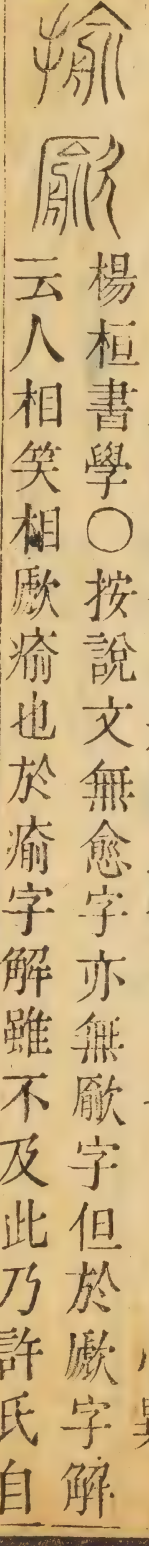 揄
楊桓書學○按說文無愈字亦無字但於歋字解
云人相笑相歋瘉也於瘉字解雖不及此乃許氏自